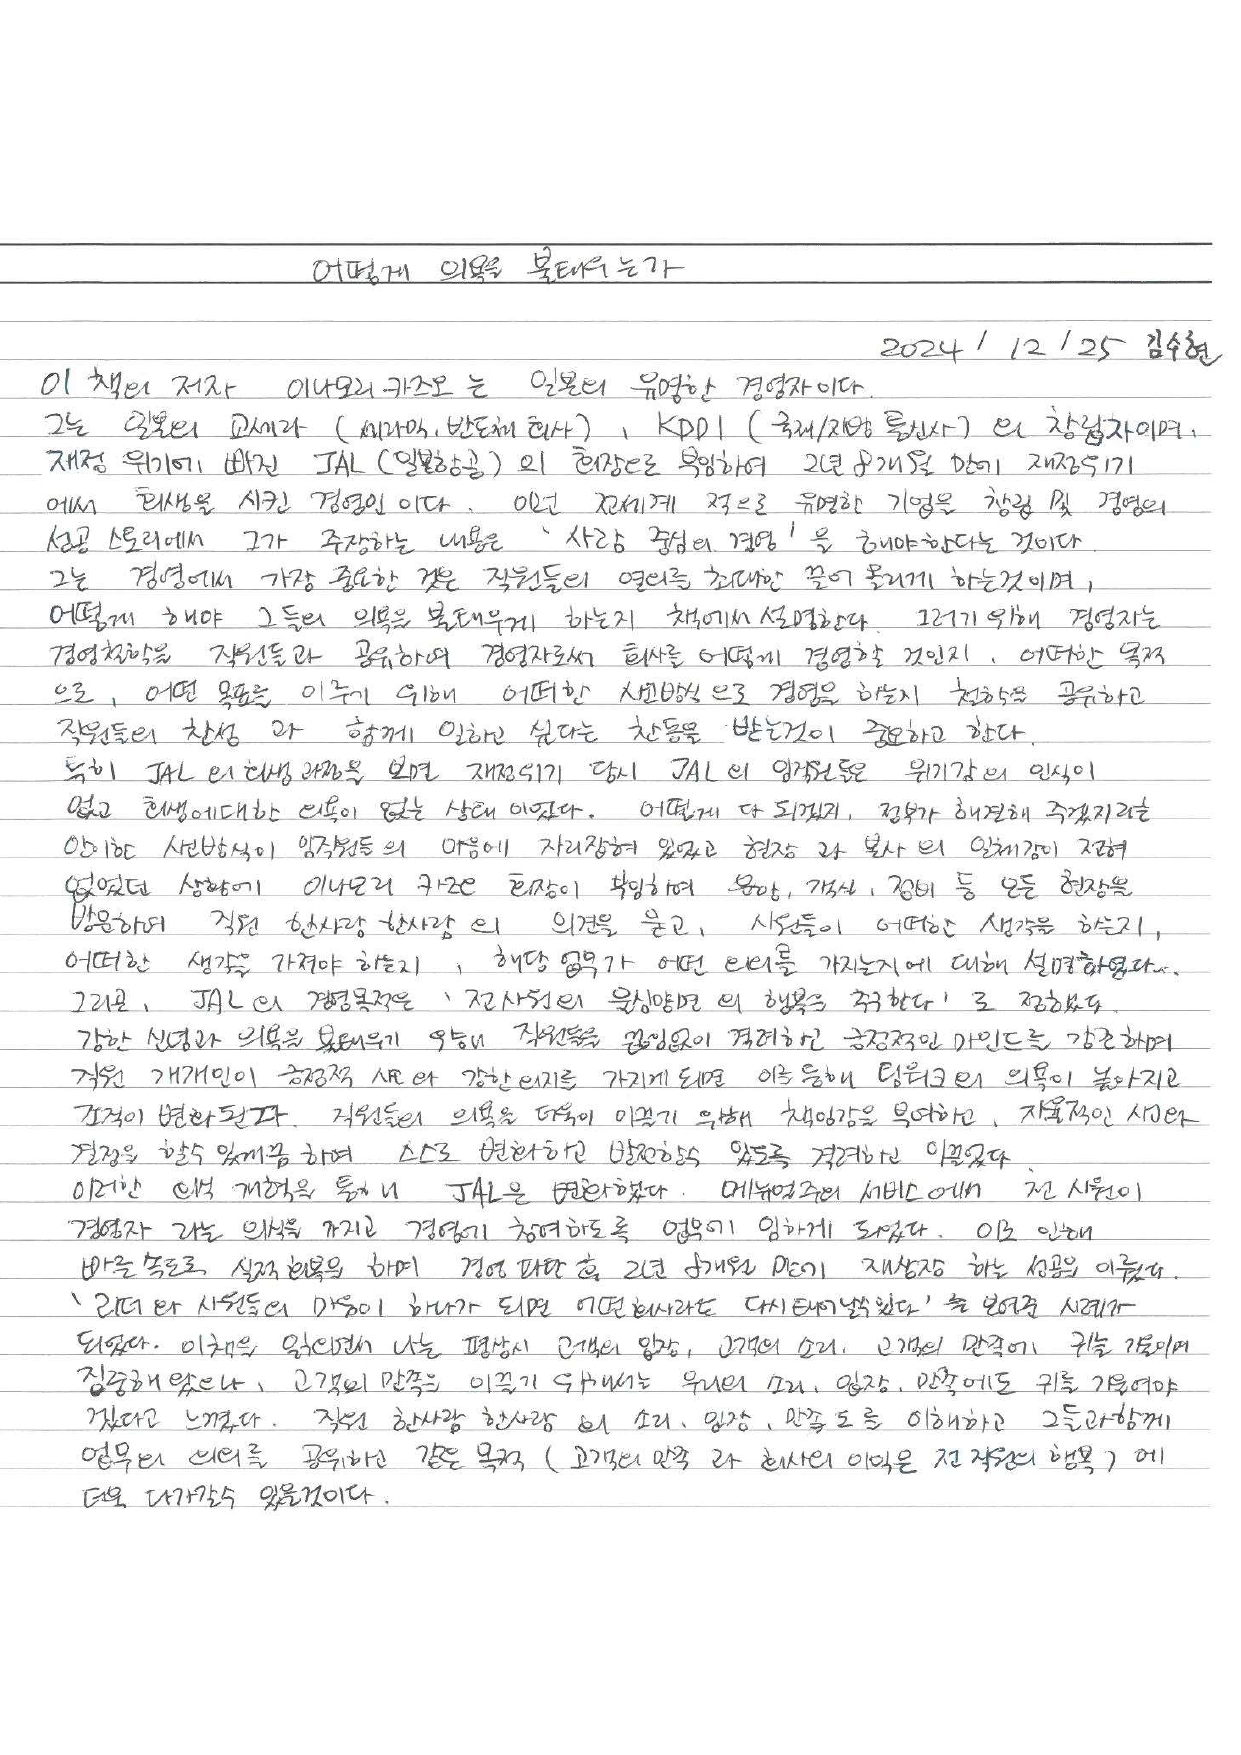 어떻게 의욕을 불태우는가
2024 / 12 / 25 김수현
이 책의 저자 이나모리 카즈오 는 일본의 유명한 경영자이다.
그는 일본의 교세라 (세라믹, 반도체 회사), KDDI (국제/지방 통신사) 의 창립자이며,
재정 위기에 빠진 JAL (일본항공) 의 회장으로 부임하여 2년 8개월 만에 재정위기
에서 회생을 시킨 경영인 이다. 이런 전세계 적으로 유명한 기업을 창립 및 경영의
성공 스토리에서 그가 주장하는 내용은 '사람 중심의 경영' 을 해야한다는 것이다.
그는 경영에서 가장 중요한 것은 직원들의 열의를 최대한 끌어 올리게 하는것이며,
어떻게 해야 그들의 의욕을 불태우게 하는지 책에서 설명한다. 그러기 위해 경영자는
경영철학을 직원들과 공유하여 경영자로써 회사를 어떻게 경영할 것인지, 어떠한 목적
으로, 어떤 목표를 이루기 위해 어떠한 사고방식 으로 경영을 하는지 철학을 공유하고
직원들의 찬성 과 함께 일하고 싶다는 찬동을 받는것이 중요하고 한다.
특히 JAL 의 회생 과정을 보면 재정위기 당시 JAL의 임직원들은 위기감의 인식이
없고 회생에대한 의욕이 없는 상태 이었다. 어떻게 다 되겠지, 정부가 해결해 주겠지라는
안이한 사고방식이 임직원들 의 마음에 자리잡혀 있었고 현장 과 본사 의 일체감이 전혀
없었던 상황에 이나모리 카즈오 회장이 부임하여 공항, 객실, 정비 등 모든 현장을
방문하여 직원 한사람 한사람 의 의견을 묻고, 사원들이 어떠한 생각을 하는지,
어떠한 생각을 가져야 하는지, 해당 업무가 어떤 의의를 가지는지에 대해 설명하였다.
그리고, JAL의 경영목적은 '전사원의 물심양면 의 행복을 추구한다' 로 정하였다.
강한 신념과 의욕을 불태우기 위해 직원들을 끊임없이 격려하고 긍정적인 마인드를 강조하며
직원 개개인이 긍정적 사고 와 강한 의지를 가지게 되면 이를 통해 팀워크의 의욕이 높아지고
조직이 변화 된다. 직원들의 의욕을 더욱이 이끌기 위해 책임감을 부여하고, 자율적인 사고와
결정을 할수 있게끔 하여 스스로 변화하고 발전할수 있도록 격려하고 이끌었다.
이러한 의식 개혁을 통해 JAL은 변화했다. 메뉴얼주의 서비스에서 전 사원이
경영자 라는 의식을 가지고 경영에 참여하도록 업무에 임하게 되었다. 이로 인해
빠른 속도로 실적 회복을 하며 경영 파탄 후 2년 8개월 만에 재상장 하는 성공을 이뤘다.
'리더와 사원들의 마음이 하나가 되면 어떤 회사라도 다시 태어날수있다' 를 보여준 사례가
되었다. 이책을 읽으면서 나는 평상시 고객의 입장, 고객의 소리, 고객의 만족에, 귀를 기울이며
집중해 왔으나, 고객의 만족을 이끌기 위해서는 우리의 소리, 입장, 만족에도 귀를 기울여야
겠다고 느꼈다. 직원 한사람 한사람 의 소리, 입장, 만족 도를 이해하고 그들과함께
업무의 의의를 공유하고 같은 목적 (고객의 만족 과 회사의 이익은 전 직원의 행복) 에
더욱 다가갈수 있을것이다.